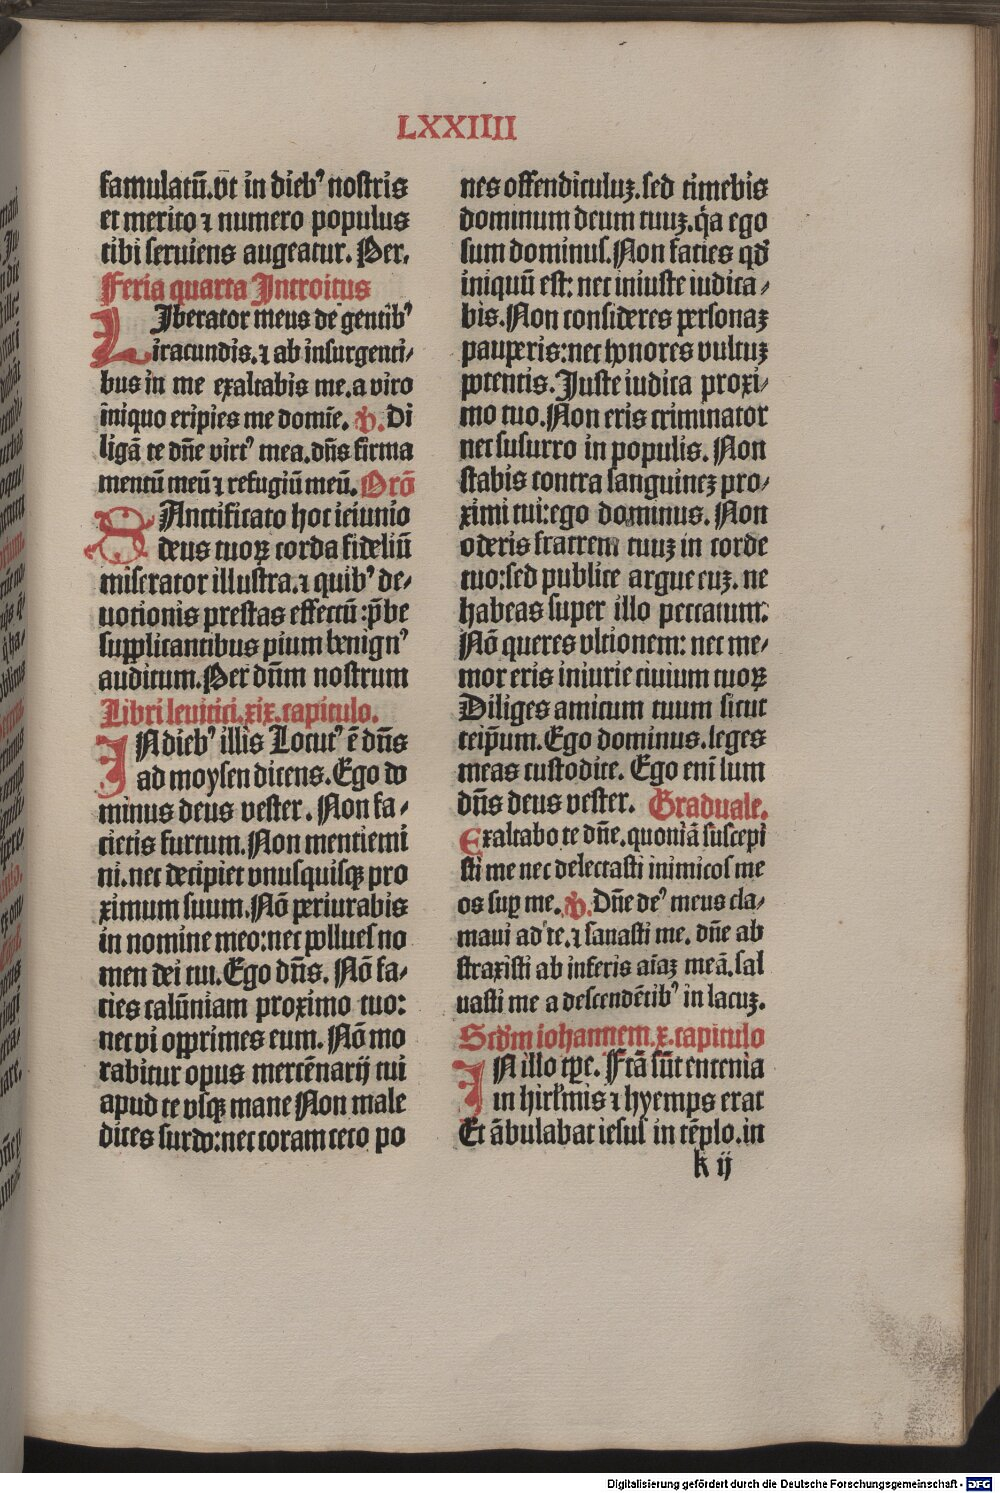 LXXIIII
famulatū.vt in dieb⁹ nostris
et merito ⁊ numero populus
tibi seruiens augeatur. Per.
Feria quarta Introitus
LIberator meus de gentib⁹
iracundis.⁊ ab insurgenti⸗
bus in me exaltabis me.a viro
iniquo eripies me domīe. ℣. Di
ligā te dn̄e virt⁹ mea.dn̄s firma
mentū meū ⁊ refugiū meū. Orō
SAnctificato hoc ieiunio
deus tuoꝝ corda fideliū
miserator illustra.⁊ quib⁹ de⸗
uotionis prestas effectū:p̄be
supplicantibus pium benign⁹
auditum.Per dn̄m nostrum
Libri leuitici.xix.capitulo.
INdieb⁹ illis Locut⁹ ē dn̄s
ad moysen dicens.Ego do
minus deus vester. Non fa⸗
cietis furtum.Non mentiemi
ni.nec decipiet vnusquisqꝫ pro
ximum suum.Nō periurabis
in nomine meo:nec pollues no
men dei tui.Ego dn̄s. Nō fa⸗
cies calūniam proximo tuo:
nec vi opprimes eum. Nō mo
rabitur opus mercēnarij tui
apud te vsqꝫ mane Non male
dices surdo:nec coram ceco po
nes offendiculuꝫ.sed timebis
dominum deum tuuꝫ.q̄a ego
sum dominus.Non facies qd̄
iniquū est: nec iniuste iudica⸗
bis.Non consideres personaꝫ
pauperis:nec honores vultuꝫ
potentis.Iuste iudica proxi⸗
mo tuo.Non eris criminator
nec susurro in populis. Non
stabis contra sanguineꝫ pro⸗
ximi tui:ego dominus. Non
oderis fratrem tuuꝫ in corde
tuo:sed publice argue euꝫ. ne
habeas super illo peccatum:
Nō queres vltionem: nec me⸗
mor eris iniurie ciuium tuoꝝ
Diliges amicum tuum sicut
teip̄um.Ego dominus.leges
meas custodite. Ego enī sum
dn̄s deus vester. Graduale.
Exaltabo te dn̄e.quoniā suscepi
sti me nec delectasti inimicos me
os suꝑ me.℣.Dn̄e de⁹ meus cla⸗
maui ad te.⁊ sanasti me. dn̄e ab
straxisti ab inferis aīaꝫ meā.sal
uasti me a descendētib⁹ in lacuꝫ.
Scd̄m iohannem.x.capitulo
IN illo tꝑe. Fctā sūt encenia
in hirl̄mis ⁊ hyemps erat
Et ābulabat iesus in tēplo.in
k ij
Digitalisierung gefördert durch die Deutsche Forschungsgemeinschaft - DFG